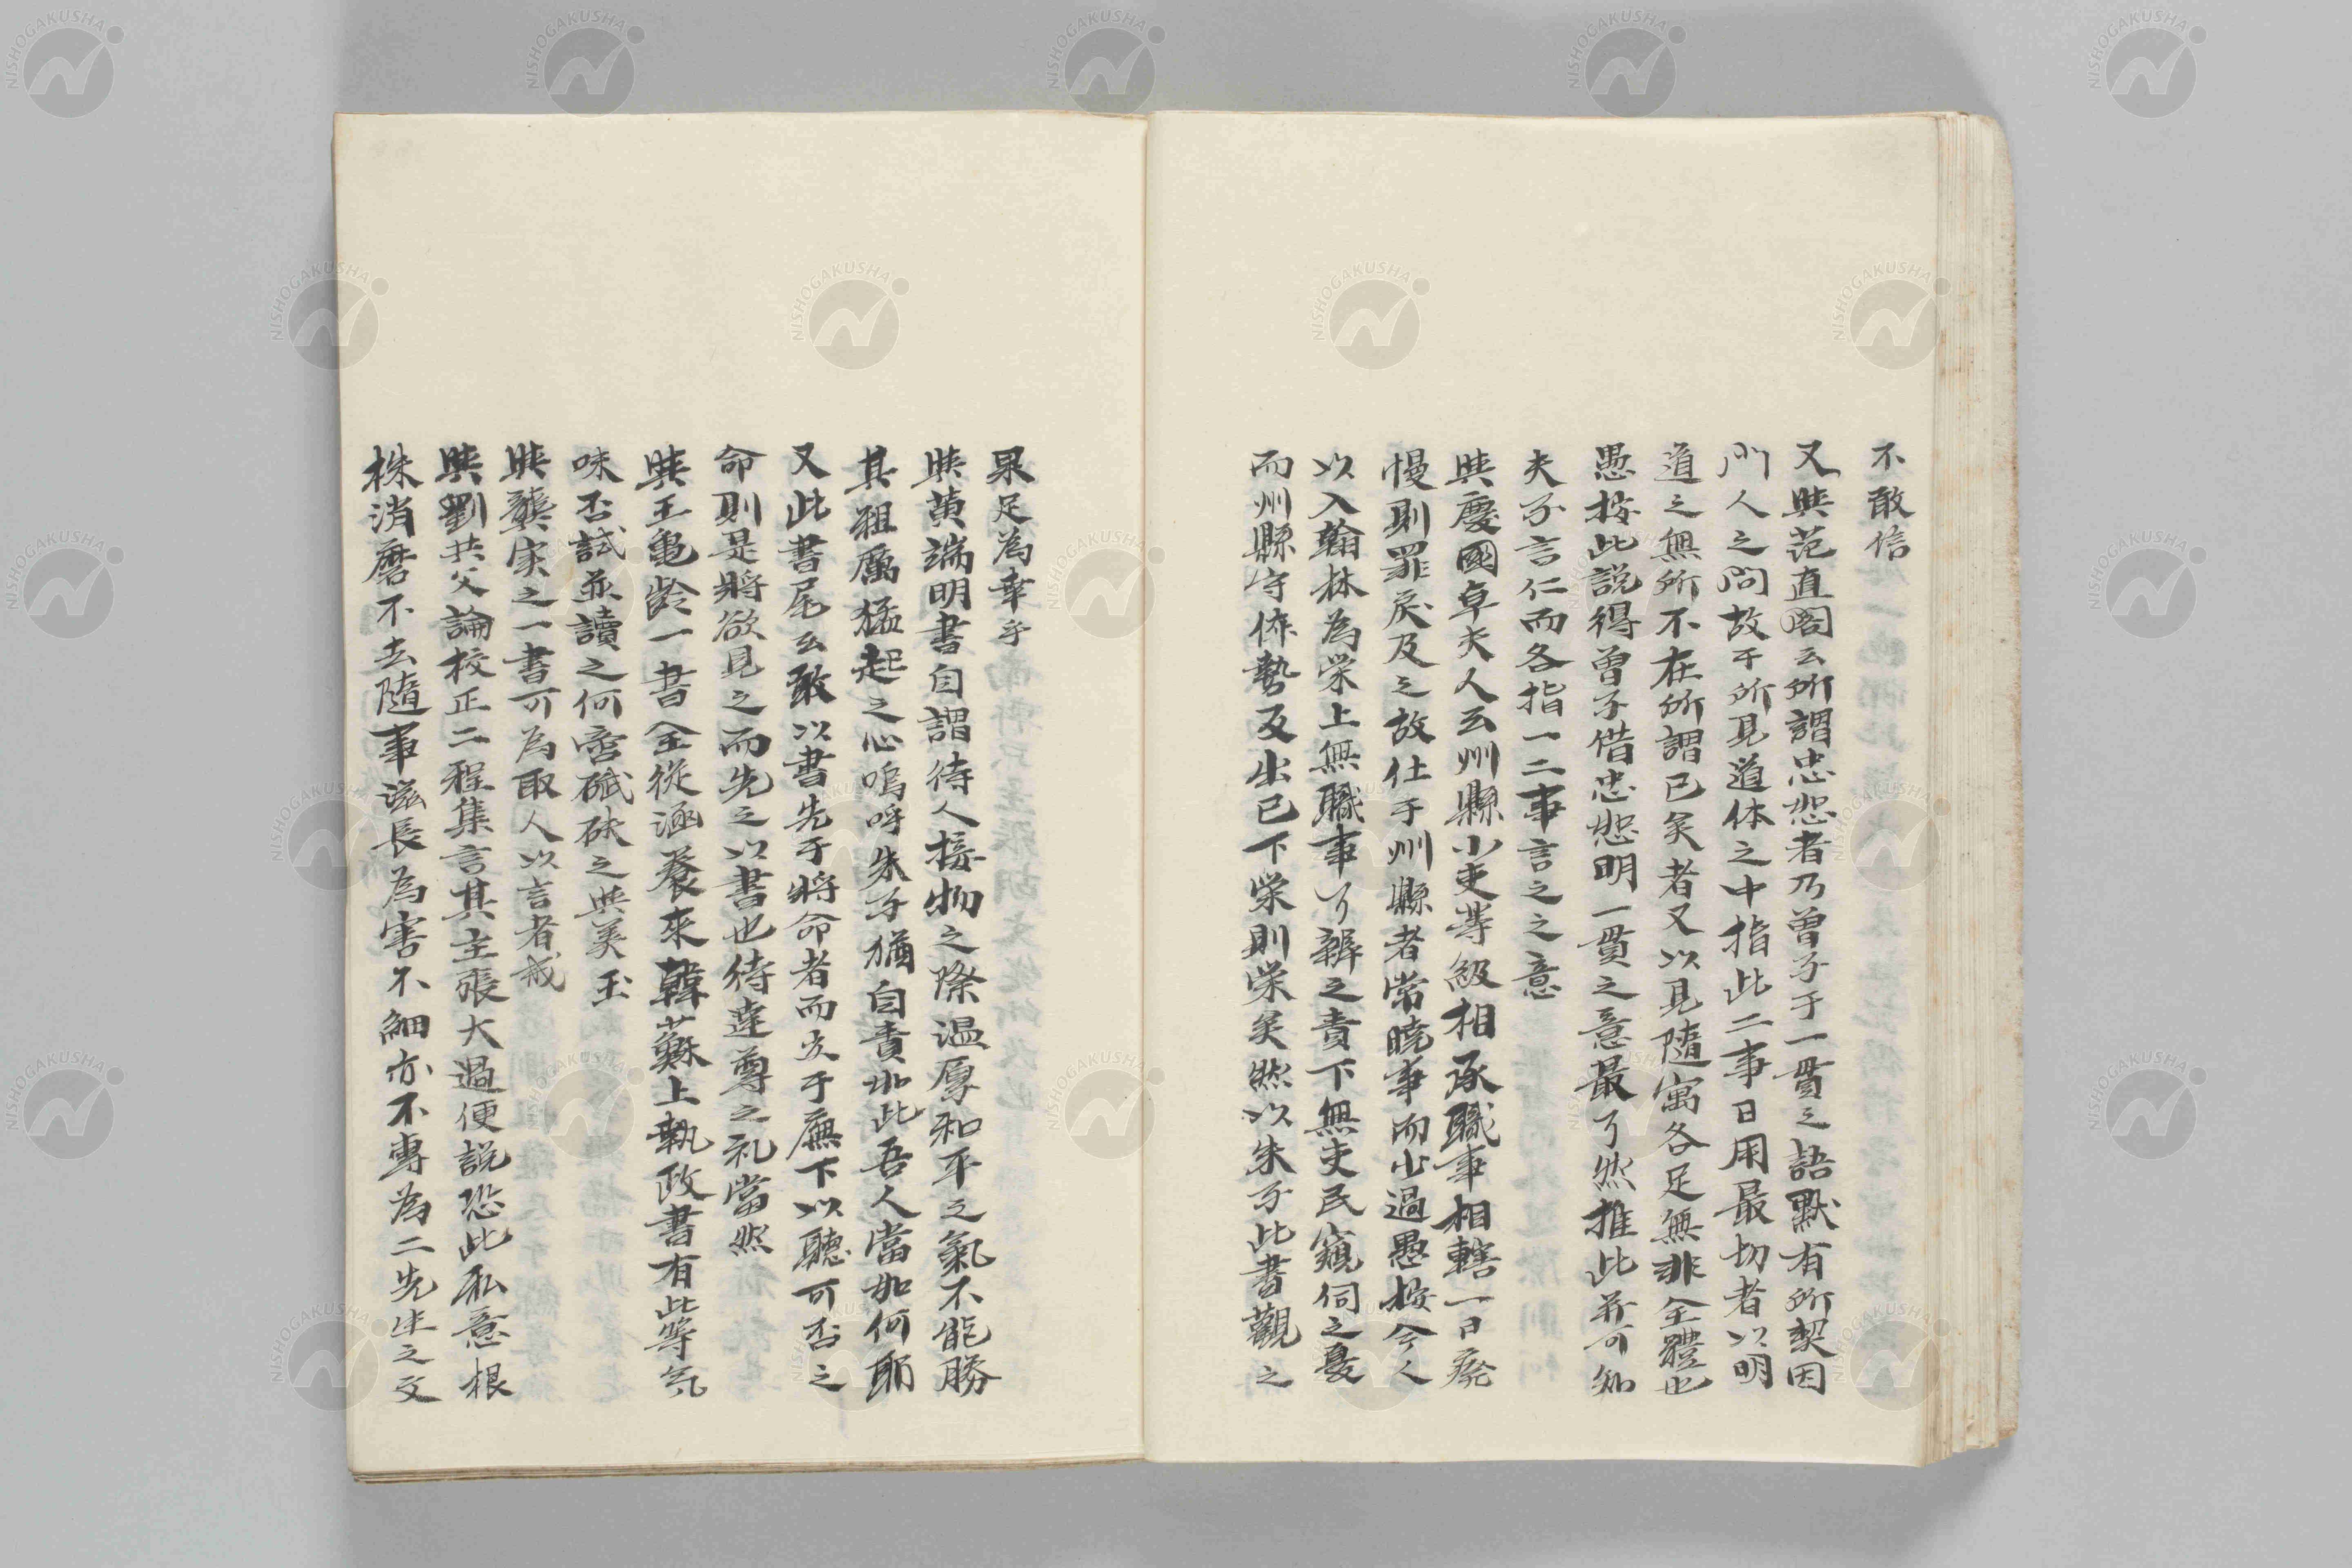 不敢信
又與范直閣云所謂忠恕者乃曾子于一貫之語默有所契因
門人之問故于所見道体之中指此二事日用最切者以明
道之無所不在所謂已矣者又以見隨寓各足無非全體也
愚按此説得曾子借忠恕明一貫之意最了然推此并可知
夫子言仁而各指一二事言之之意
與慶國卓夫人云州縣小吏等級相承職事相轄一日廢
慢則罪戾及之故仕于州縣者常曉事而少過愚按今人
以入翰林為榮上無職事了辦之責下無吏民窺伺之憂
而州縣守倅勢反出已下榮則榮矣然以朱子此書觀之
果足為幸乎
與黄端明書自謂待人接物之際温厚和平之氣不能勝
其粗厲猛起之心嗚呼朱子猶自責如此吾人當如何耶
又此書尾云敢以書先于將命者而立于廡下以聽可否之
命則是將欲見之而先之以書也待達尊之礼當然
與王龜齡一書全從涵養來韓蘇上執政書有此等気
味否試並讀之何啻碔砆之與美玉
與龔実之一書可為取人以言者戒
與劉共父論校正二程集言其主張大過便説恐此私意根
株消磨不去隨事滋長為害不細亦不專為二先生之文
NISHOGAKUSHA